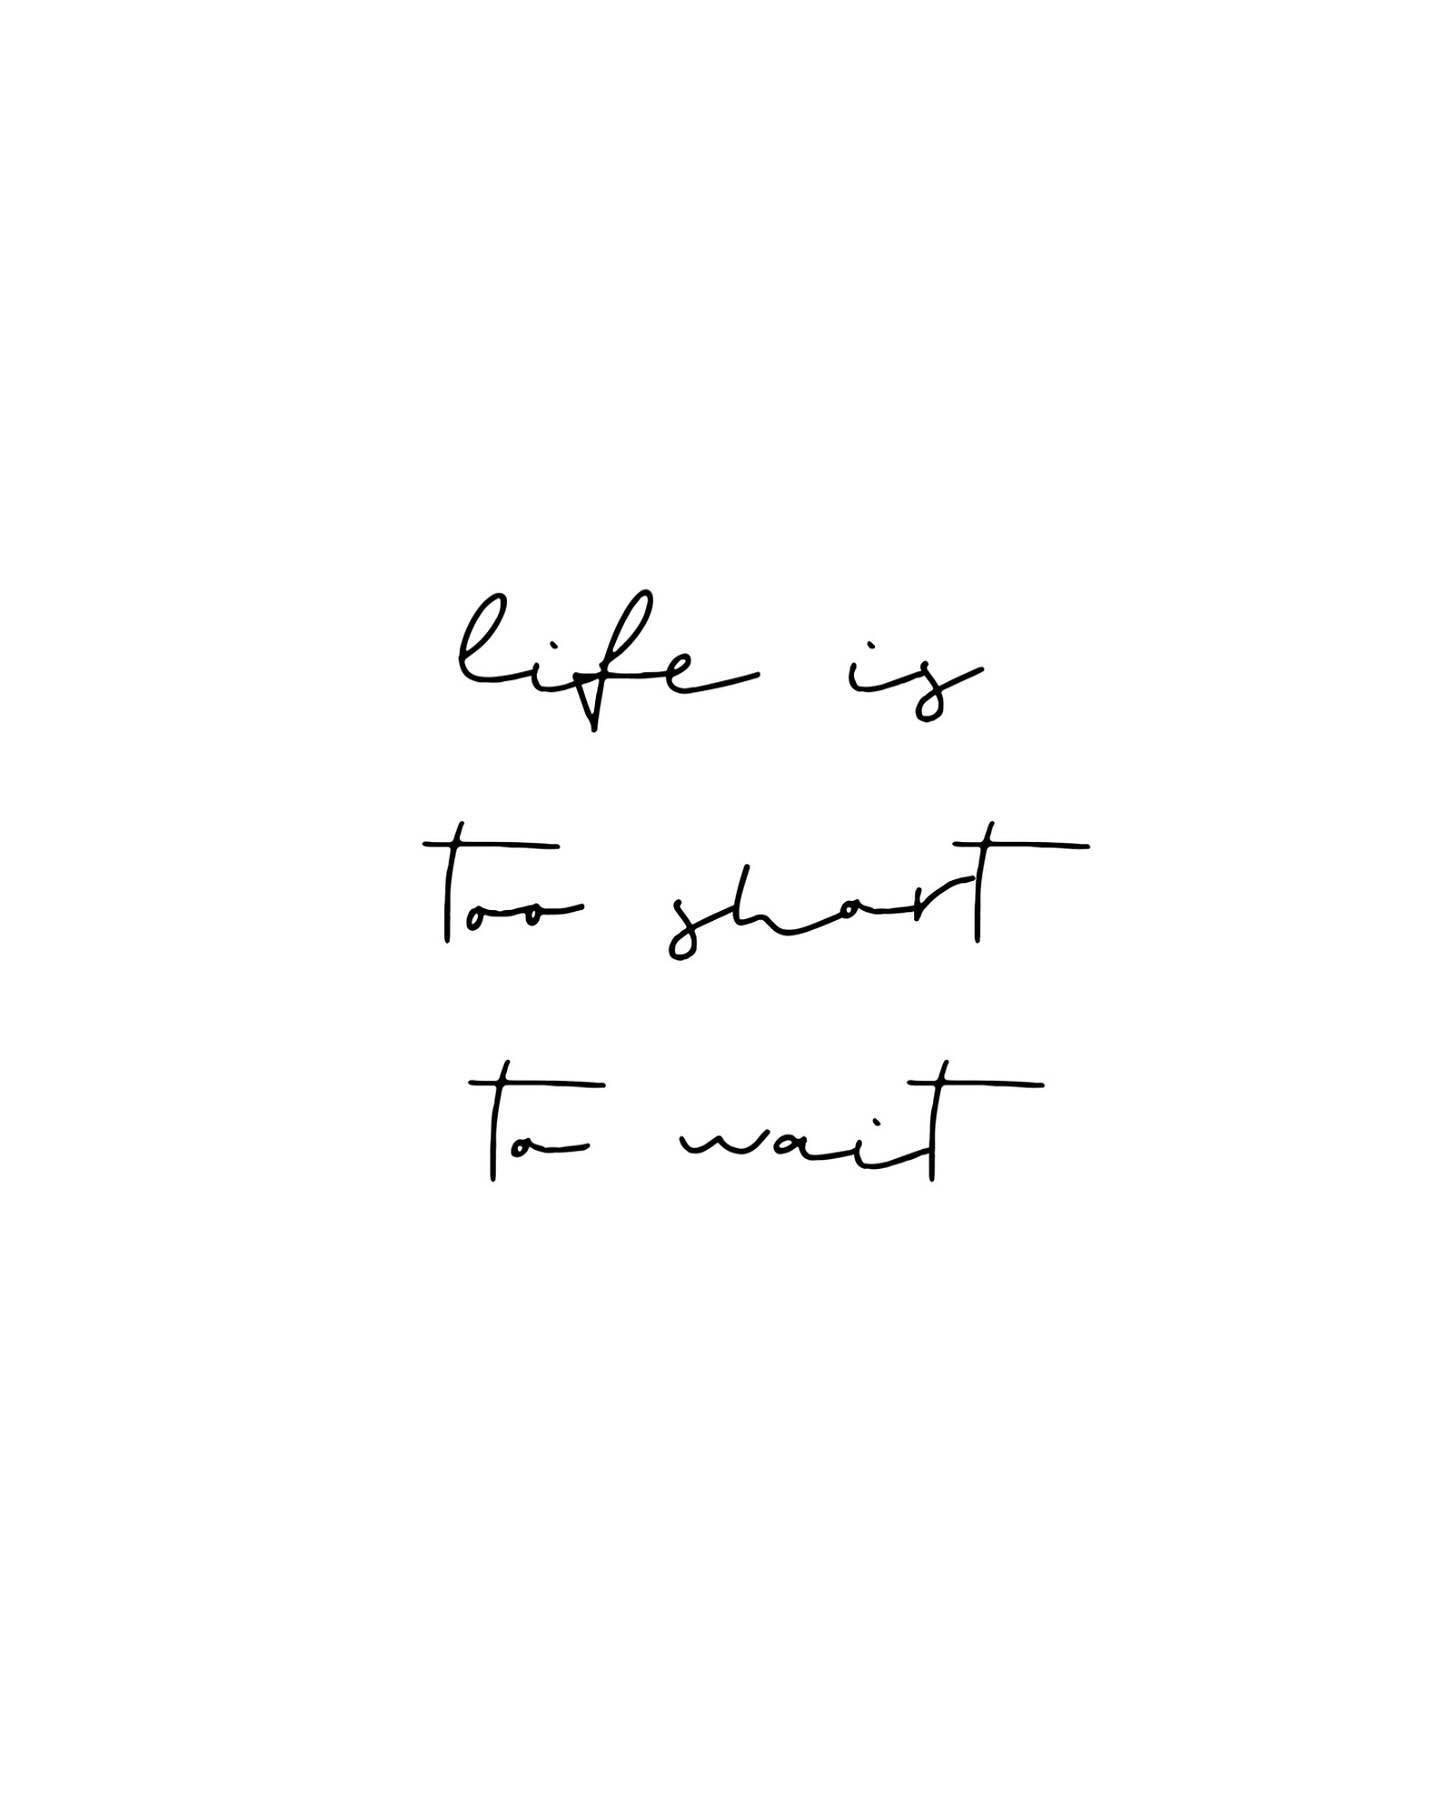 life is
too short
to wait